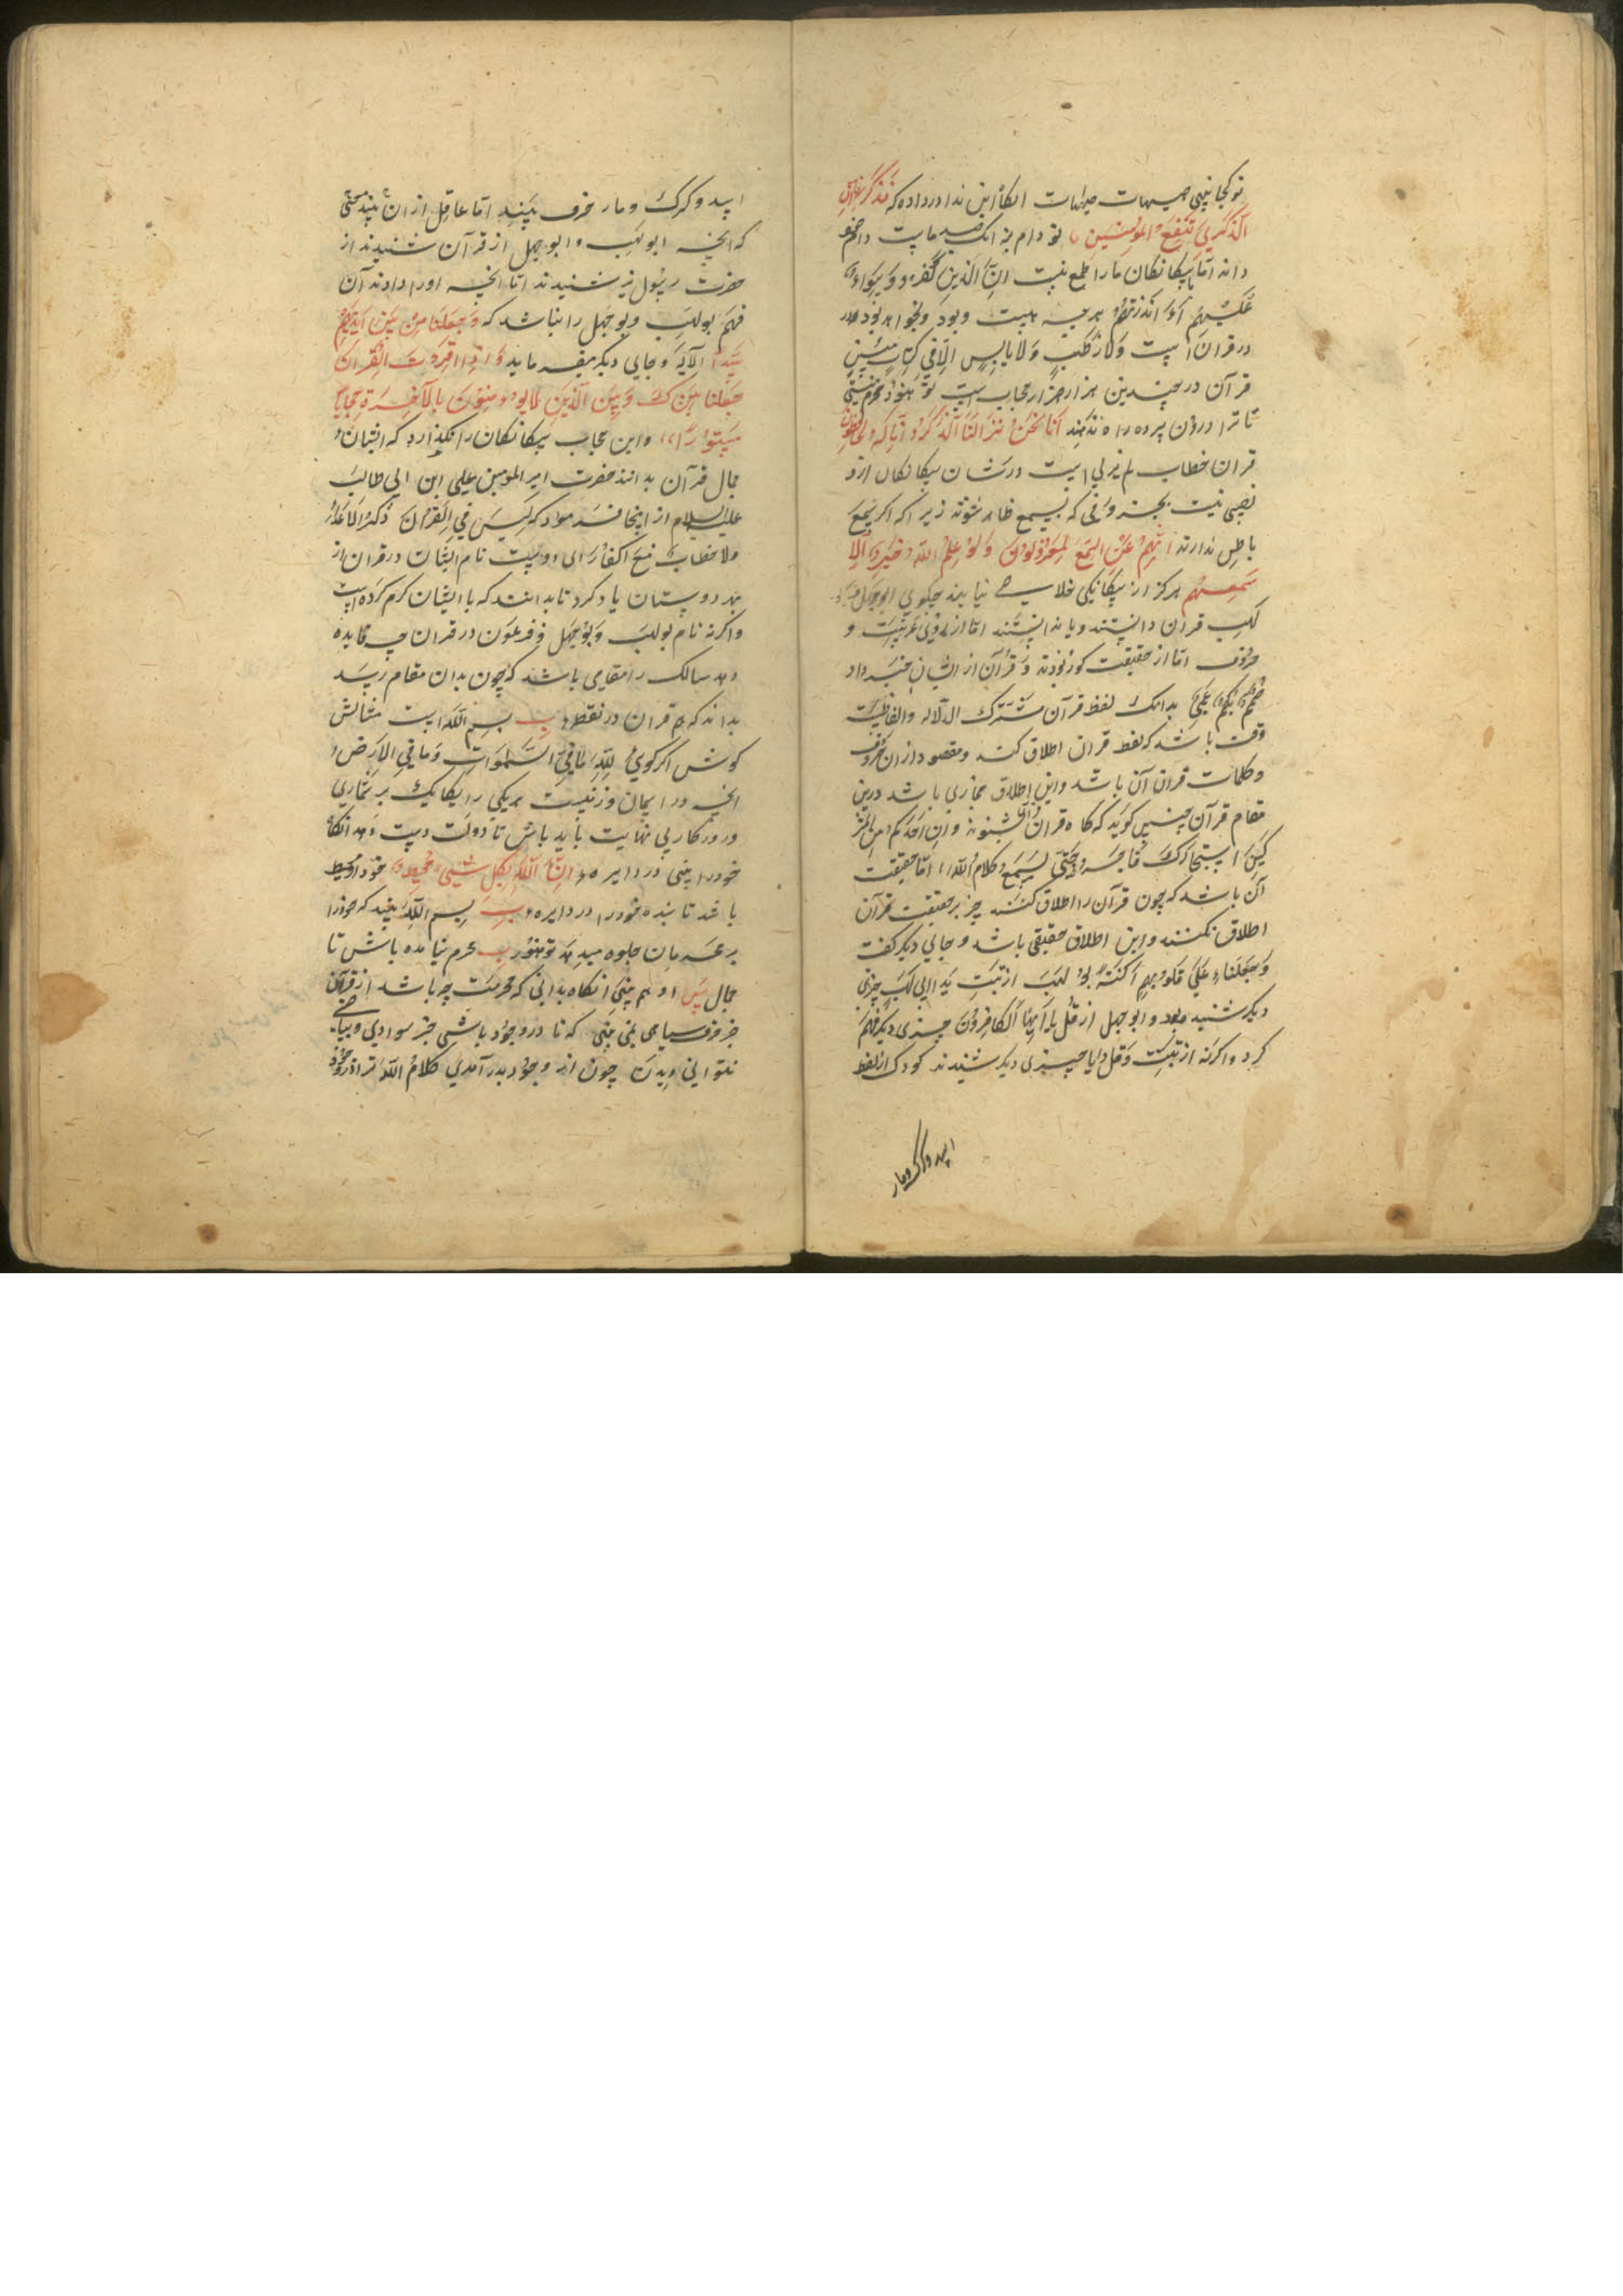 تو کجا بینی هیهات هیهات انکاه این ندا در داده که فذکر فان
الذکری تنفع المؤمنین تو دام بنه انک صید ما است و ان هم
دانه اما بیکانکان ما را طمع نیست ان الذین کفروا سواء
علیهم ءانذرتهم هر چه هست و بود و خواهد بود همه
در قرانست ولا رطب ولا یابس الا فی کتاب مبین
قرآن در چندین هزار هزار حجاب است تو هنوز محرم نیستی
تا ترا درون پرده راه ندهند انا نحن نزلنا الذکر و انا له لحافظون
قران خطاب لم یزلی است در شان بیکانکان ازو
نصیبی نیست بجز حروفی که بسمع ظاهر شنوند زیرا که اکر سمع
باطن ندارند انهم عن السمع لمعزولون ولو علم الله فیهم خیرا لا
سمعهم هرکز از بیکانکی خلاصی نیابند چکویی ابوجهل و بو
لهب قران دانستند و یا ندانستند اما از روی عربیت و
حروف اما از حقیقت کور بودند و قرآن از ایشان خبر داد
صم بکم عمی بدانک لفظ قرآن مشترک الدلاله والفاظست
وقت باشد که لفظ قران اطلاق کنند و مقصود از ان حروف
و کلمات قران آن باشد و این اطلاق مجازی باشد درین
مقام قرآن چنین کوید که کاه قران شنوند وان احد من المشر
کین استجارک فاجره حتی یسمع کلام الله اما حقیقت
آن باشد که چون قرآن را اطلاق کنند جز بر حقیقت قرآن
اطلاق نکنند و این اطلاق حقیقی باشد و جایی دیکر کفت
وجعلنا علی قلوبهم اکنة بو لهب از تبت یدا ابی لهب چیزی
دیکر شنیده بود و ابوجهل از قل یا ایها الکافرون چیزی دیکر فهم
کرد و اکرنه از تبت و قل یا چیزی دیکر شنیدند کودک از لفظ
اسد و کرک و مار
اسد و کرک و مار حرف بیند اما عاقل از ان بیند معنی
که انچه ابولهب و ابوجهل از قرآن شنیدند از
حضرت رسول نیز شنیدند اما انچه اورا دادند آن
فهم بولهب و بوجهل را نباشد که وجعلنا من بین ایدیهم
سدا الآیه و جایی دیکر میفرماید و اذا قرات القران
جعلنا بینک و بین الذین لا یومنون بالآخرة حجابا
مستورا و این حجاب بیکانکان را نکذارد که ایشان
جمال قرآن بدانند حضرت امیر المومنین علی ابن ابی طالب
علیه السلام از اینجا فرمود که لیس فی القران ذکر الاعداء
ولا خطاب مع الکفار ای دوست نام ایشان در قران از
بهر دوستان یاد کرد تا بدانند که با ایشان کرم کرده است
و اکرنه نام بولهب و بوجهل و فرعون در قران چه فایده
دهد سالک را مقامی باشد که چون بدان مقام رسد
بداند که همه قران در نقطه ب بسم الله است مثالش
کوش اکر کویی لله ما فی السموات وما فی الارض
انچه در اسمان و زمینست هر یکی را یکایک بر شماری
و روزکار بی نهایت باید باش تا دولت دست دهد انکاه
خود را بینی در دایره ان الله بکل شیء محیط خود او محیط
باشد تا بنده خود را در دایره ب بسم الله بیند که خود را
بر محرمان جلوه میدهد تو هنوز ب محرم نیامده باش تا
جمال یس او هم بینی انکاه بدانی که محرمیت چه باشد از قرآن
جز حرف سیاهی نمی بینی که تا در وجود باشی جز سوادی و بیاضی
نتوانی دیدن چون از وجود بدر آمدی کلام الله ترا در خود